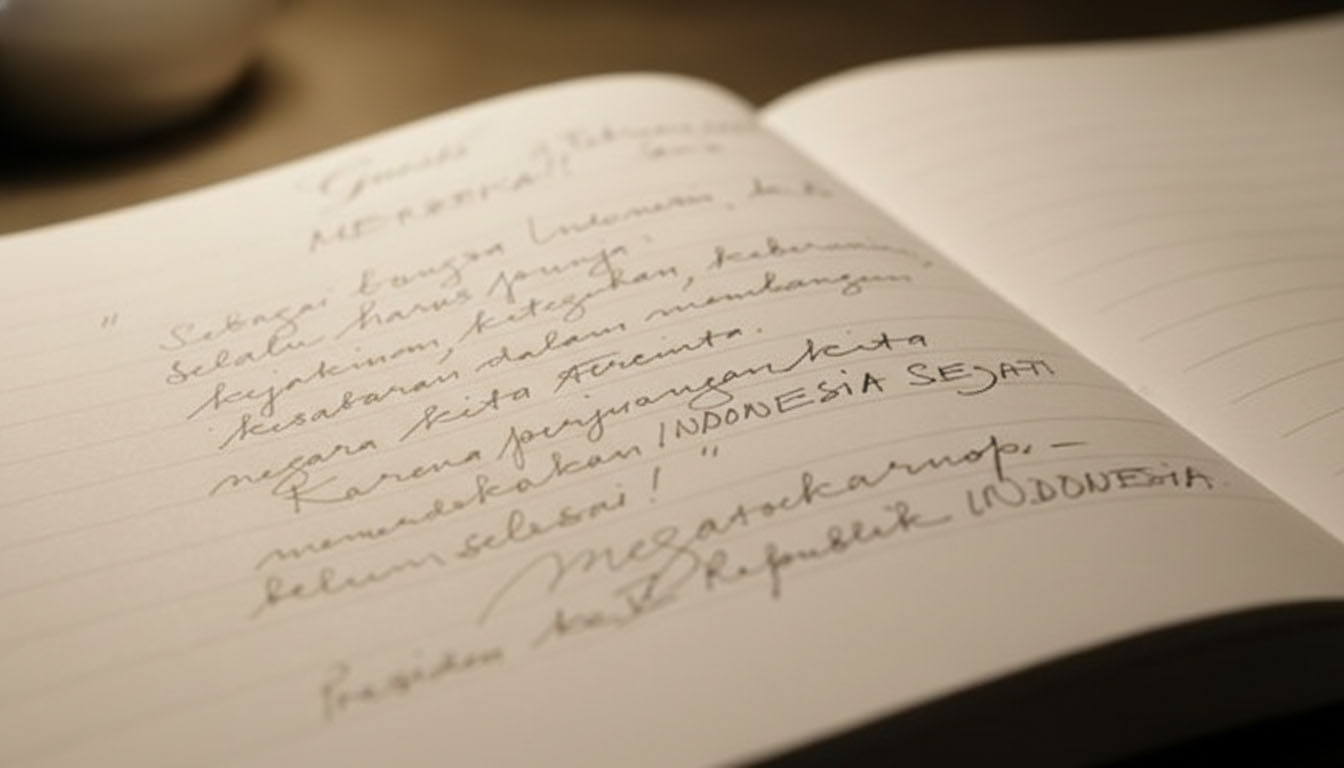 MERDEKA!!
" Sebagai bangsa Indonesia, kita
selalu harus punja:
kejakinan, keteguhan, keberanian,
kesabaran dalam membangun
negara kita tercinta.
Karena perjuangan kita
memerdekakan INDONESIA SEJATI
belum selesai! "
Megatsoekarnop. —
Presiden ke V Republik INDONESIA